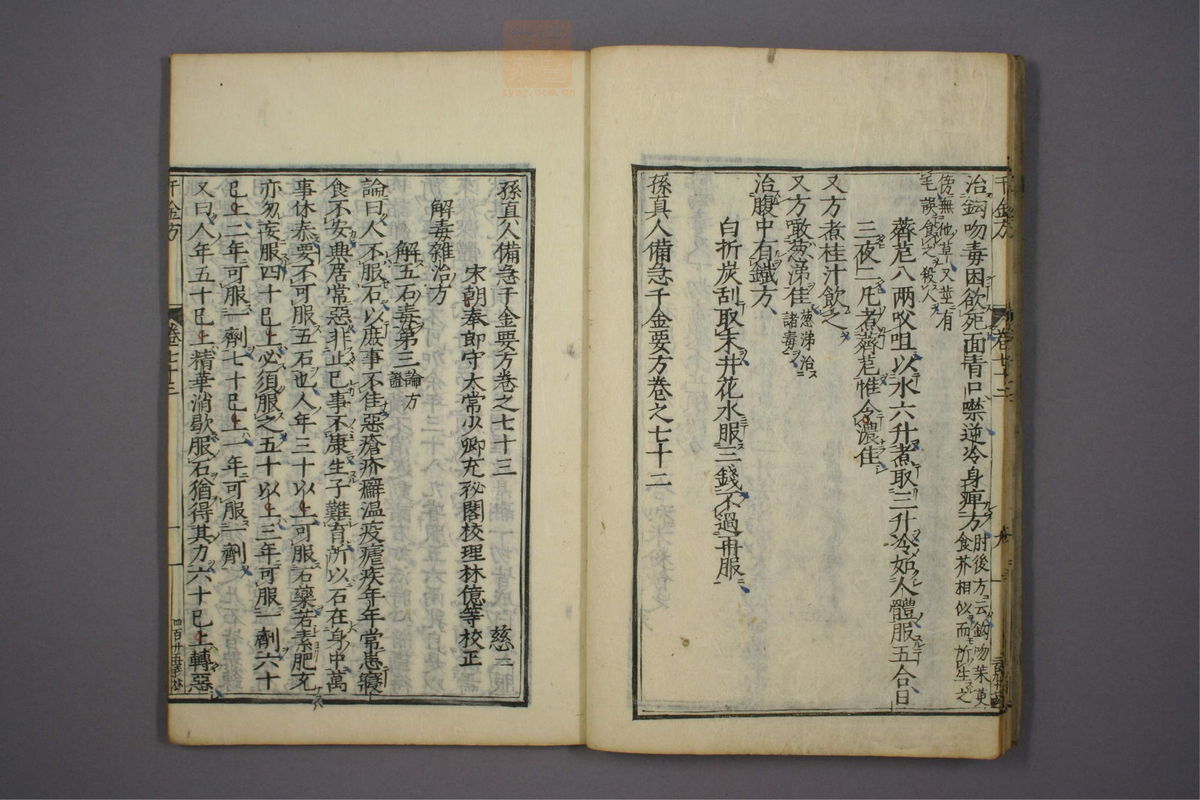 治鈎吻毒困欲死面青口噤逆冷身痺方肘後方云鈎吻茱萸食芥相似而所生之
傍無他草又莖有毛誤食之殺人
薺苨八兩㕮咀以水六升煮取三升冷如人體服五合日
三夜二凡煮薺苨惟令濃佳
又方煮桂汁飲之
又方噉葱涕佳葱涕治諸毒
治腹中有鐵方
白折炭刮取末井花水服三錢不過再服
孫真人備急千金要方卷之七十二
孫真人備急千金要方卷之七十三 慈二
宋朝奉郎守太常少卿充祕閣校理林億等校正
解毒雜治方
解五石毒第三論證方
論曰人不服石以庶事不佳惡瘡疥癬温疫瘧疾年年常患寢
食不安興居常惡非止已事不康生子難育所以石在身中萬
事休泰要不可服五石也人年三十以上可服石藥若素肥充
亦勿妄服四十已上必須服之五十以上三年可服一劑六十
已上二年可服一劑七十已上一年可服一劑
又曰人年五十已上精華消歇服石猶得其力六十已上轉惡
千金方
卷七十三